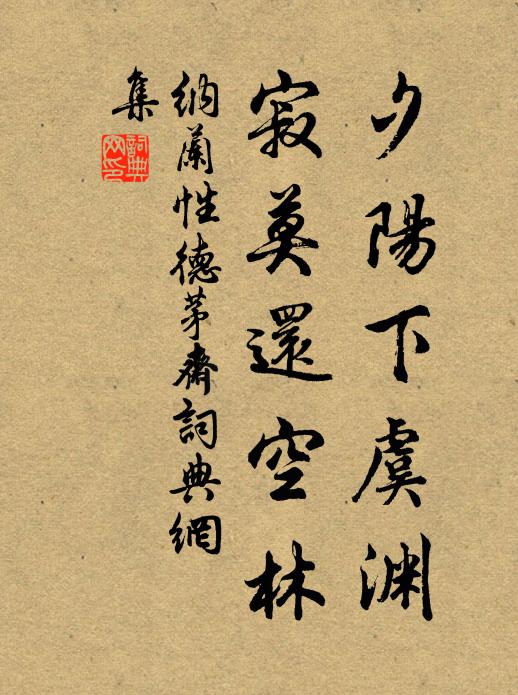 夕陽下虞渊
寂莫還空林
納蘭性德茅齋詞典網
集
詞典網印